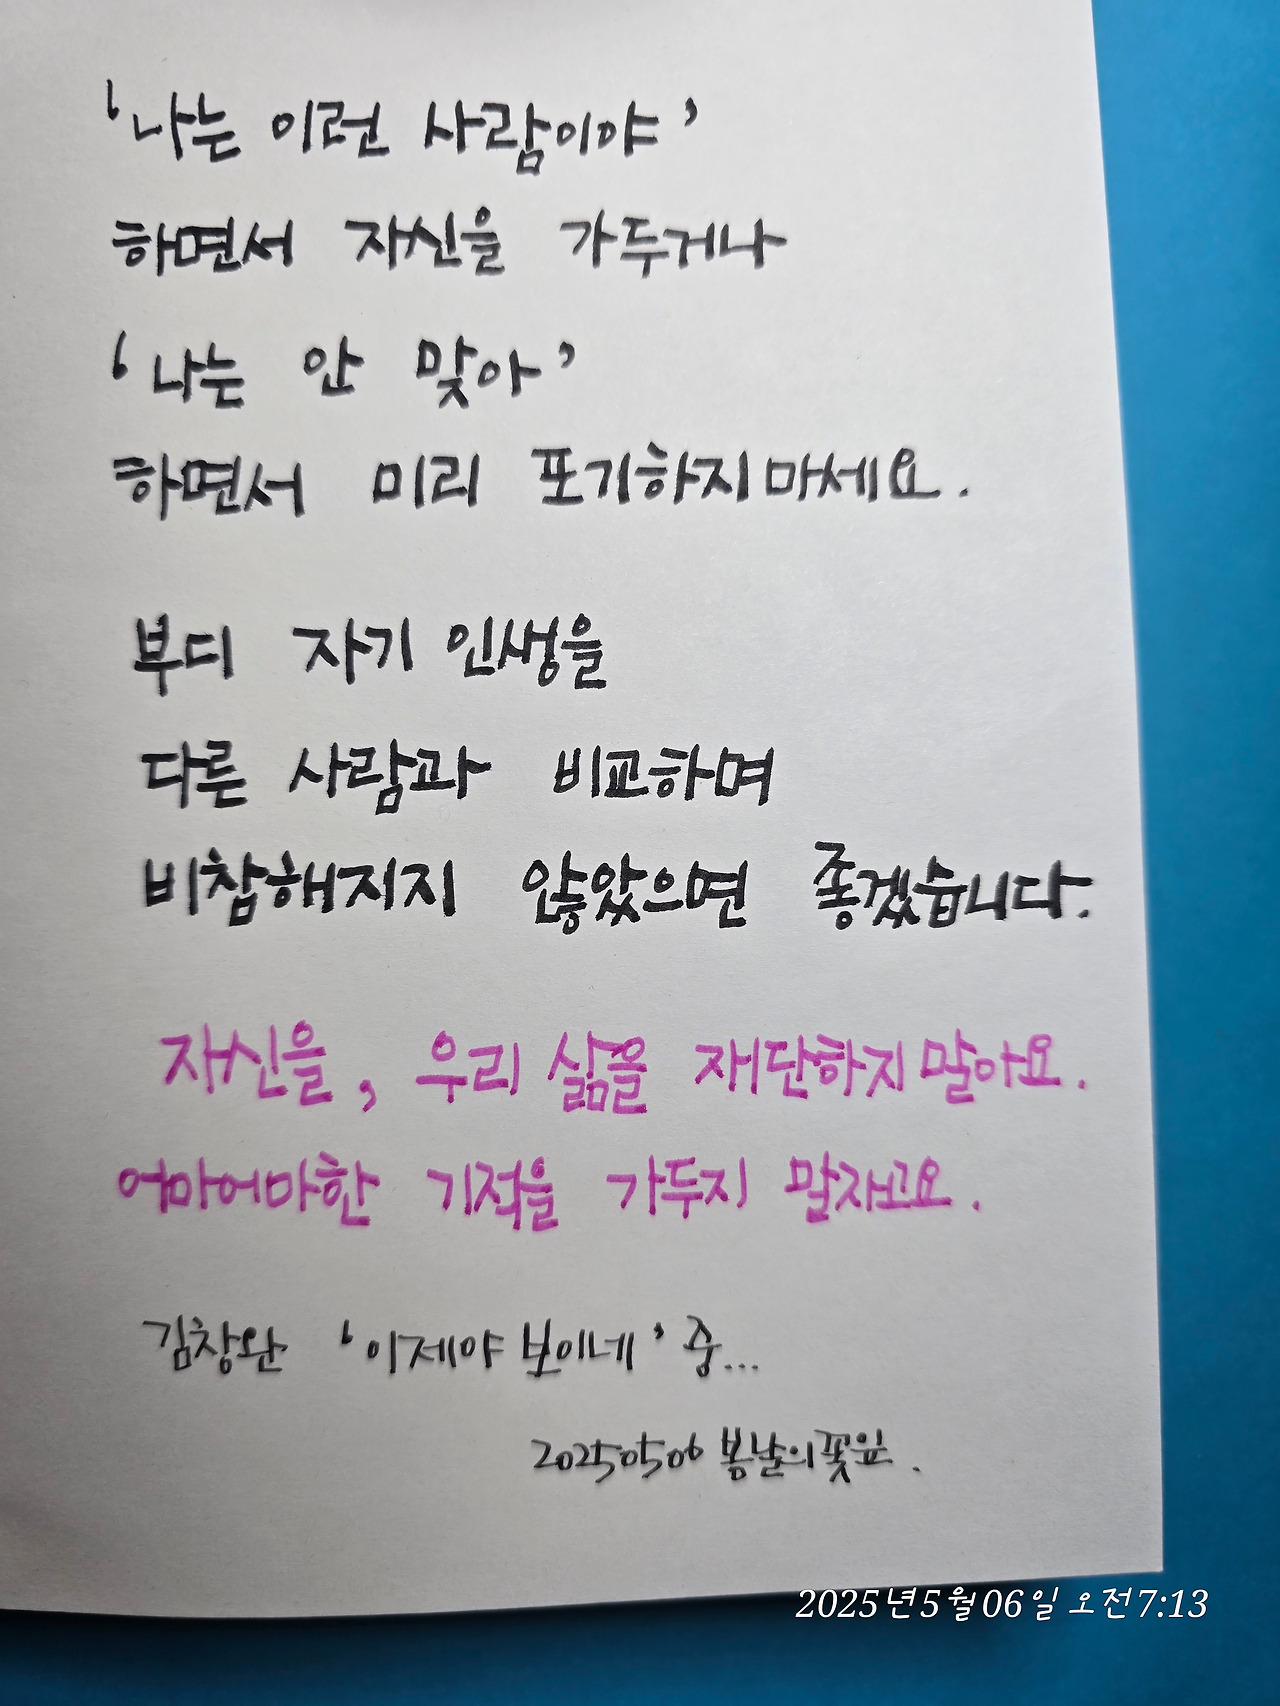 '나는 이런 사람이야'
하면서 자신을 가두거나
'나는 안 맞아'
하면서 미리 포기하지마세요.
부디 자기 인생을
다른 사람과 비교하며
비참해지지 않았으면 좋겠습니다.
자신을, 우리 삶을 재단하지말아요.
어마어마한 기적을 가두지 말자고요.
김창완 '이제야 보이네' 중...
20250506 봄날의꽃잎.
2025년5월06일 오전7:13